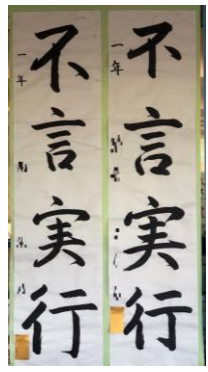 不言実行
一年
不言実行
一年